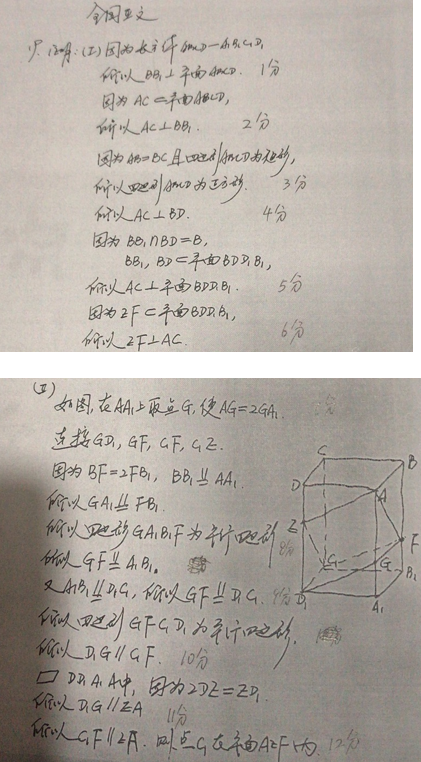 全国正文
因为长方体ABCD-A₁B₁C₁D₁
所以BB₁⊥平面ABCD. 1分
因为 AC⊂平面ABCD,
所以AC⊥BB₁. 2分
因为AB=BC且四边形ABCD为矩形,
所以四边形ABCD为正方形. 3分
所以AC⊥BD. 4分
因为 BB₁∩BD=B,
BB₁, BD⊂平面BDD₁B₁,
所以AC⊥平面BDD₁B₁. 5分
因为ZF⊂平面BDD₁B₁,
所以ZF⊥AC. 6分
(Ⅱ)
如图,在AA₁上取点G,使AG=2GA₁.
连接GD₁, GF, C₁F, C₁Z.
因为BF=2FB₁, BB₁∥AA₁
所以GA₁∥FB₁.
所以四边形GA₁B₁F为平行四边形 8分
所以 GF∥A₁B₁.
又A₁B₁∥D₁C₁, 所以GF∥D₁C₁. 9分
所以四边形GFC₁D₁为平行四边形.
所以D₁G∥C₁F. 10分
DD₁A₁A中, 因为2DZ=ZD₁
所以D₁G∥ZA 11分
所以C₁F∥ZA. 则点C₁在平面AZF内. 12分
C
B
D
A
Z
F
C₁
G
B₁
D₁
A₁